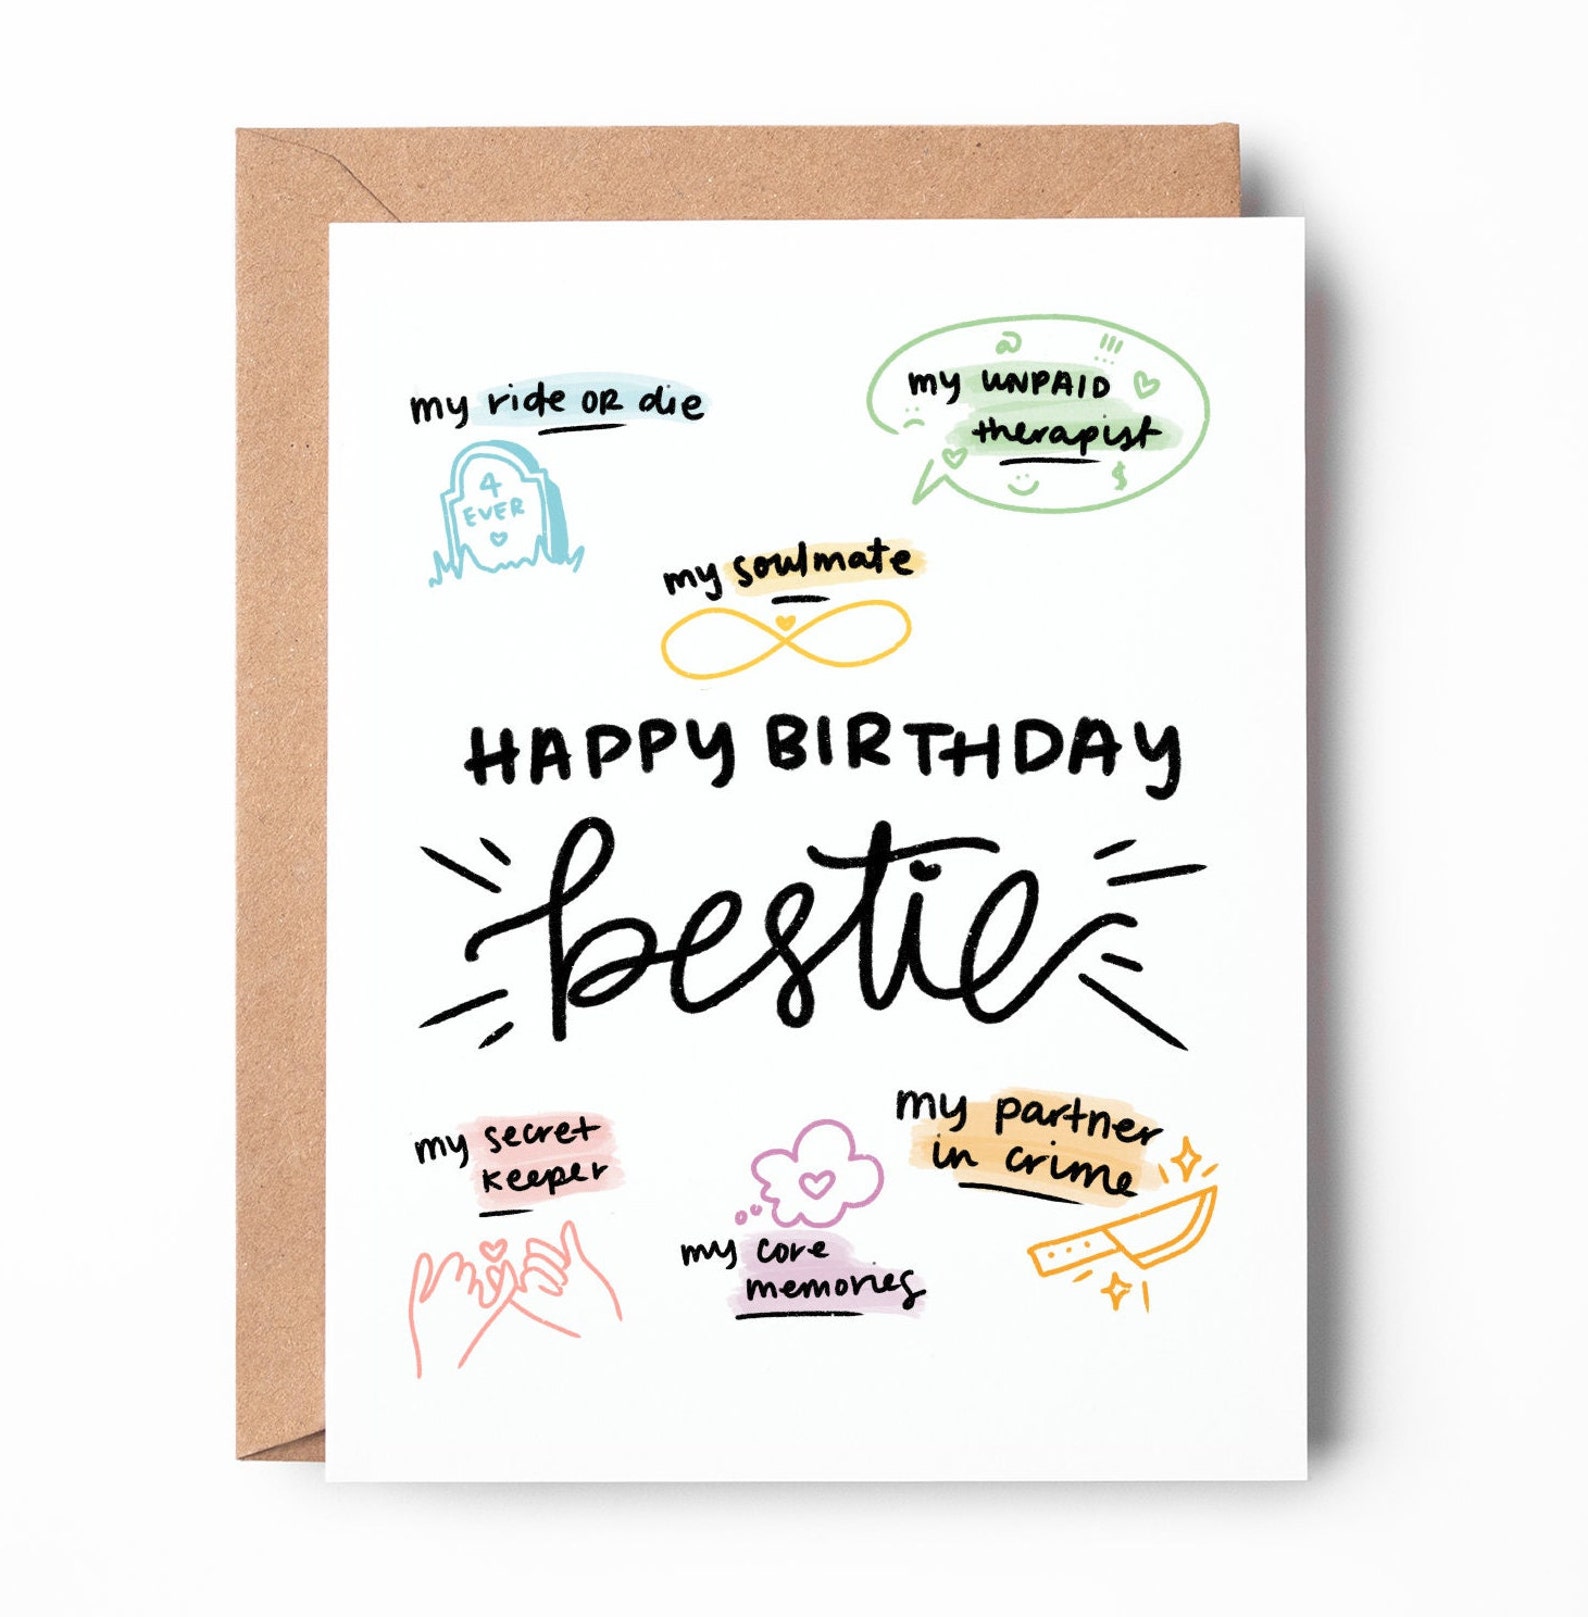 my ride OR die
4
EVER
my UNPAID
therapist
my soulmate
HAPPY BIRTHDAY
bestie
my secret
keeper
my core
memories
my partner
in crime